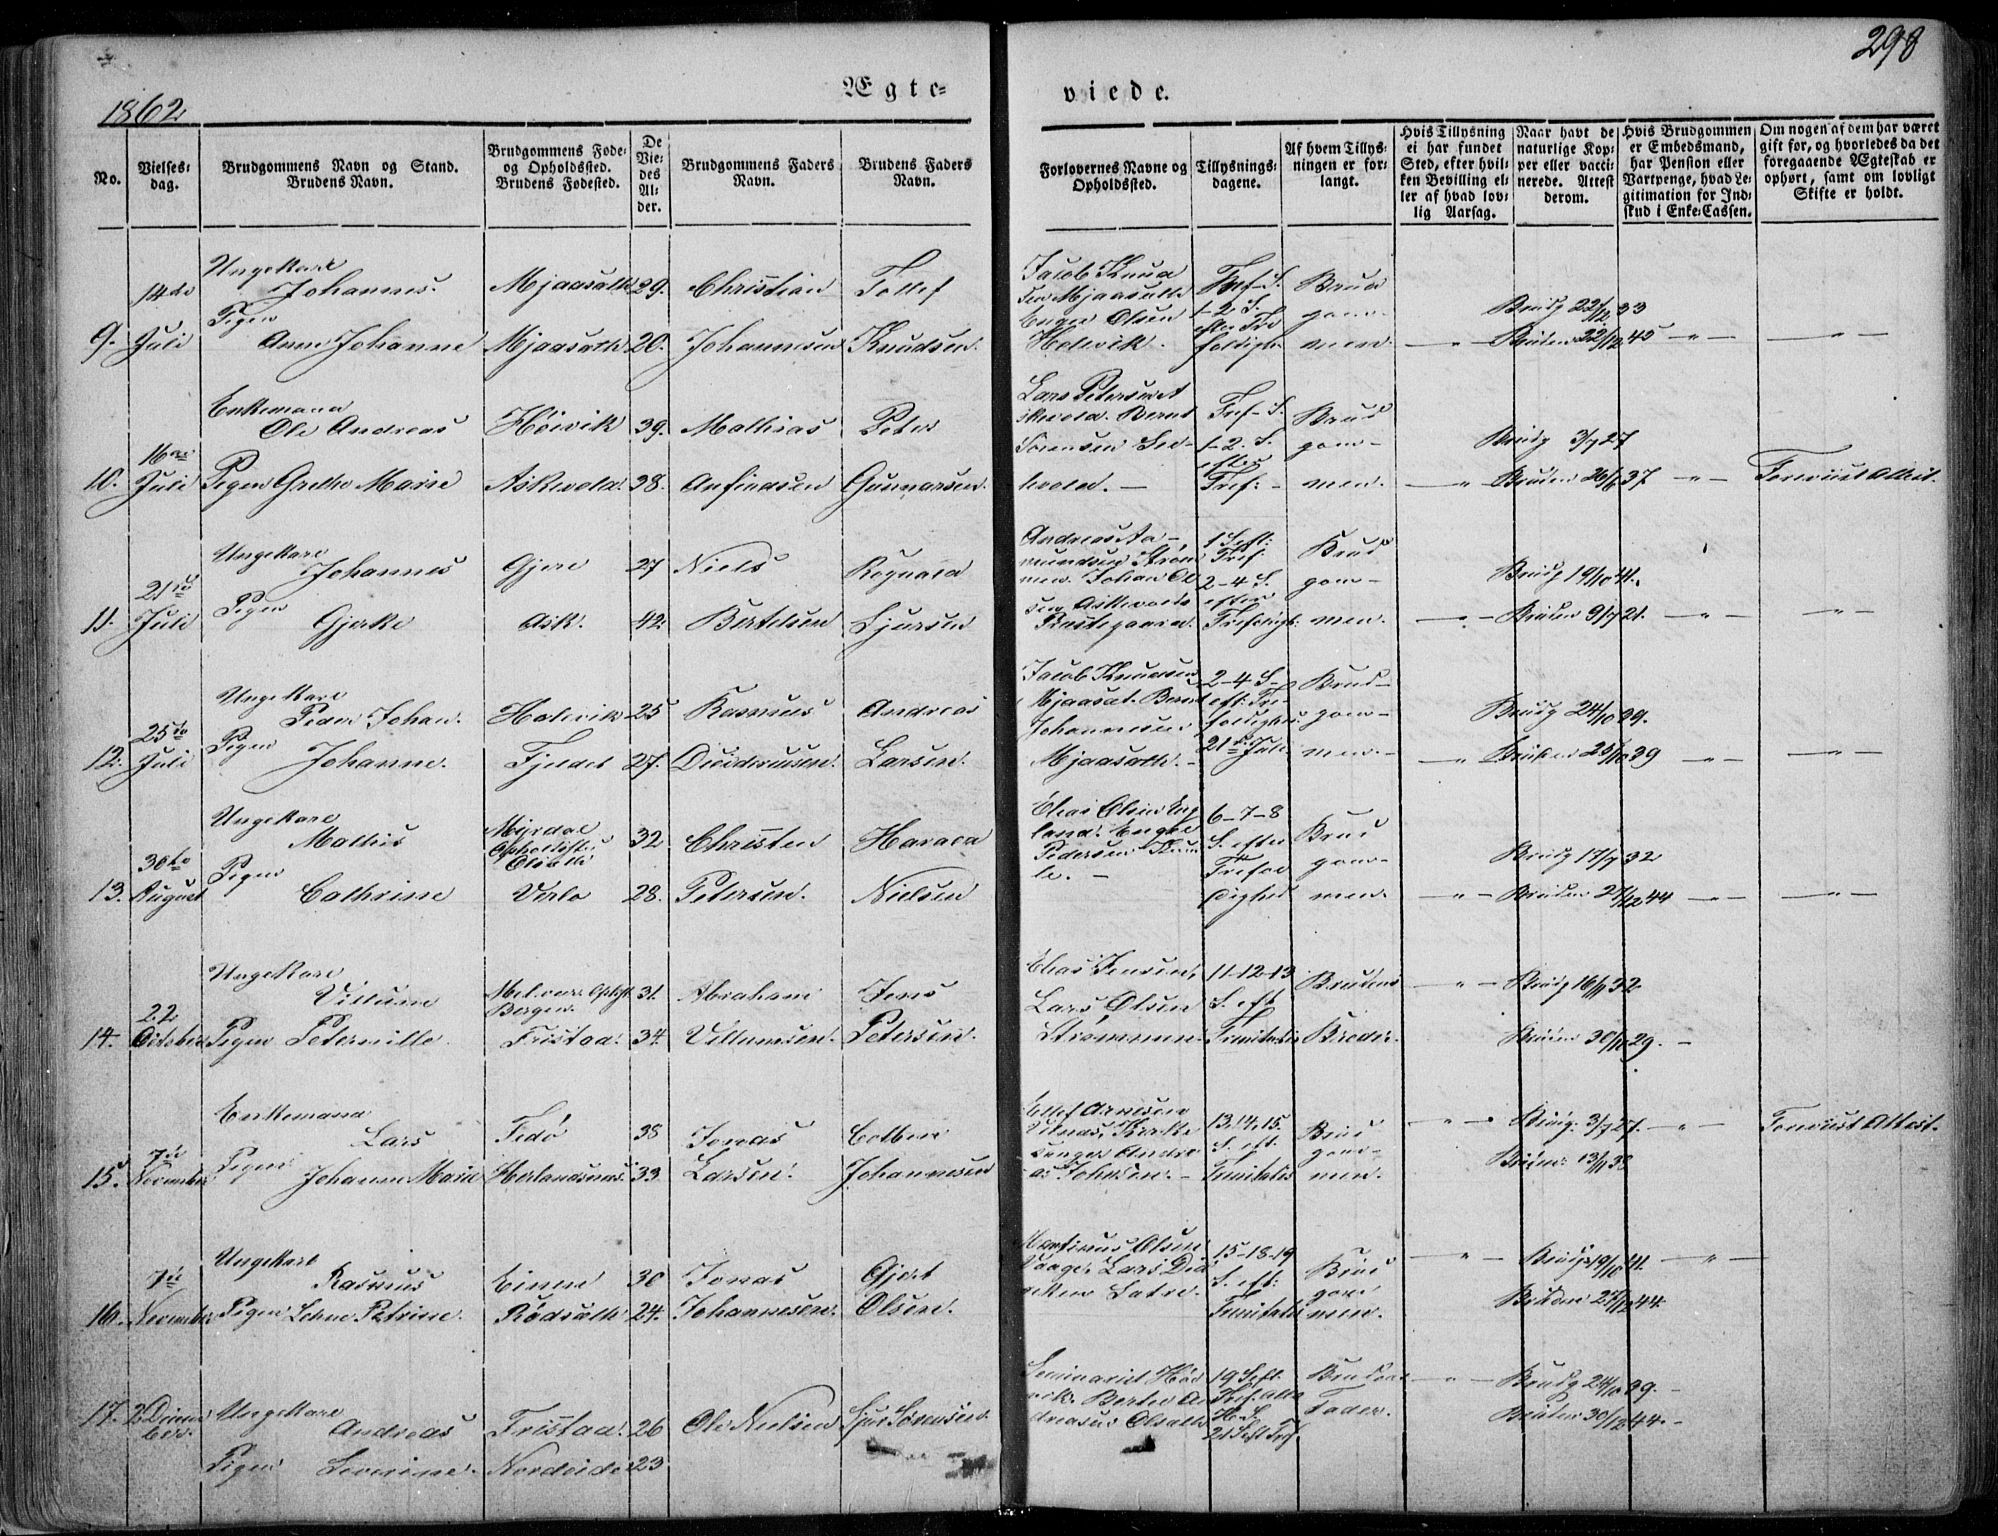 298
1862
Ægte=
viede.
No.
Vielses=
dag.
Brudgommens Navn og Stand.
Brudens Navn.
Brudgommens Føde=
og Opholdssted.
Brudens Fødested.
De
Vie=
des
Al=
der.
Brudgommens Faders
Navn.
Brudens Faders
Navn.
Forlovernes Navne og
Opholdssted.
Tillysnings=
dagene.
Af hvem Tillys=
ningen er for=
langt.
Hvis Tillysning
ei har fundet
Sted, efter hvil=
ken Bevilling el=
ler af hvad lov=
lig Aarsag.
Naar havt de
naturlige Kop=
per eller vacci=
nerede. Attest
derom.
Hvis Brudgommen
er Embedsmand,
har Pension eller
Vartpenge, hvad Le=
gitimation for Ind=
skud i Enke=Cassen.
Om nogen af dem har været
gift før, og hvorledes da det
foregaaende Ægteskab er
ophørt, samt om lovligt
Skifte er holdt.
9.
14de
Juli
Ungekarl
Johannes.
Pigen
Anne Johanne
Mjaasæth
Mjaasæth
29.
20.
Christian
Johannesen
Tollef
Knudsen.
Jacob Knud
sen Mjaasæth
Enger Olsen
Helvik.
Tref. S.
1-2. S.
efter Tre
foldigh.
Brud
gom-
men.
Brudg 22/12 33
Bruden 22/12 45
10.
16de
Juli
Enkemand
Ole Andreas
Pigen Grethe Marie
Høivik
Askevold.
39.
38.
Mathias
Anfindsen
Peter
Gunnarsen.
Lars Petersen
Askevold. Bernt
Sørensen
Tref. S.
1-2. S.
efter
Tref:
Brud
gom-
men.
Brudg 3/7 27
Bruden 26/6 37
Foreviist Attest.
11.
21de
Juli
Ungekarl
Johannes
Pigen
Gjerke
Gjere
Ask.
27
42.
Niels
Bertelsen
Rognald
Sjursen
Andreas Aa-
mundsen Strøm
men. Johan Ol
sen Askevolds
Præstegaard.
1 S. eft:
Tref:
2-4 S.
efter
Trefoldigh.
Brud
gom-
men.
Brudg 19/10 41.
Bruden 9/7 21.
12.
25de
Juli
Ungekarl
Peder Johan.
Pigen
Johanne.
Holevik
Fjeldet
25
27.
Rasmus
Didriksen.
Andreas
Larsen.
Jacob Knudsen
Mjaasæt. Bernt
Johannesen
Mjaasæth.
2-4 S.
eft: Tre
foldighed:
21de Juli
Brud-
gom-
men.
Brudg 24/10 39.
Bruden 25/10 39
13.
30te
August
Ungekarl
Mathis
Pigen
Cathrine
Myrdal
Opholdst:
Olsætter
Verlo
32
28.
Christen
Petersen.
Harald
Nielsen
Elias Olsen
land. Engel
Pedersen
6-7-8
S. efter
Trefol
dighed
Brud
gom-
men.
Brudg 17/7 32
Bruden 27/12 44
14.
22
October
Ungekarl
Villum
Pigen Peternille.
Melvær. Opholdst
Bergen.
Fristad.
31.
34.
Abraham
Villumsen.
Jens
Petersen.
Elias Jensen,
Lars Olsen
Strømmen.
11-12-13
S. eft
Trinitatis
Brudens
Broder.
Brudg 16/7 32
Bruden 30/10 29.
15.
7de
November
Enkemand
Lars
Pigen
Johanne Marie
Fedø
Herlandsnæs.
38
33
Jonas
Larsen.
Colben
Johannesen
Ellef Arnesen
Vilnæs. Kirke
senger Andre
as Johnsen.
13, 14, 15.
S. eft.
Trinitatis
Brud
gom-
men.
Brudg: 3/7 27.
Bruden 13/11 38
Foreviist Attest.
16.
7de
November
Ungekarl
Rasmus
Pigen Lehne Petrine.
Einen
Rødsæth.
30
24.
Jonas
Johannesen.
Gjert
Olsen.
Martinus Olsen
Vaage. Lars Did
riksen Sætre.
15-18-19
S. eft:
Trinitatis
Brud
gom
men.
Brudg. 19/10 41.
Bruden 27/12 44.
17.
2 Decem
ber.
Ungekarl
Andreas
Pigen Severine.
Fristad.
Nordeide
26
23
Ole Nielsen
Sjur Sørensen.
Seminarist Høi
vik. Berten An
dreasen Olsæth.
19 S. eft.
Tref. Alle
H. S.
21 S. eft Tref.
Brudens
Fader.
Brudg 24/10 39.
Bruden 30/12 44.